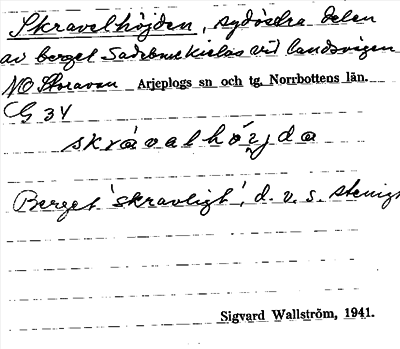 Skravelhöjden, sydöstra delen
av berget vid landsvägen
NO Storavan Arjeplogs sn och tg, Norrbottens län.
G 34
skràvalhö́jda
Berget 'skravligt', d. v. s. stenigt
Sigvard Wallström, 1941.